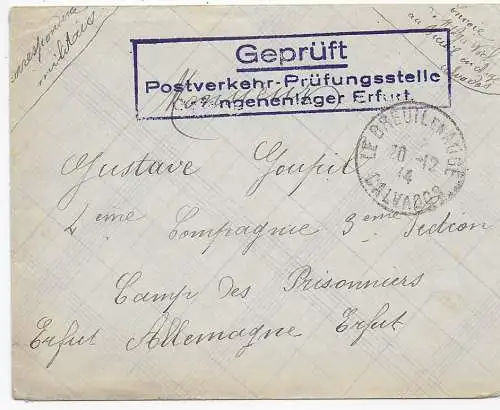 correspondance
militaire
Geprüft
Postverkehr-Prüfungsstelle
Gefangenenlager Erfurt
Monsieur
LE BREUIL-EN-AUGE
20 -12
14
CALVADOS
Gustave Goupil
2eme Compagnie 3eme Section
Camp des Prisonniers
Erfut Allemagne Erfut